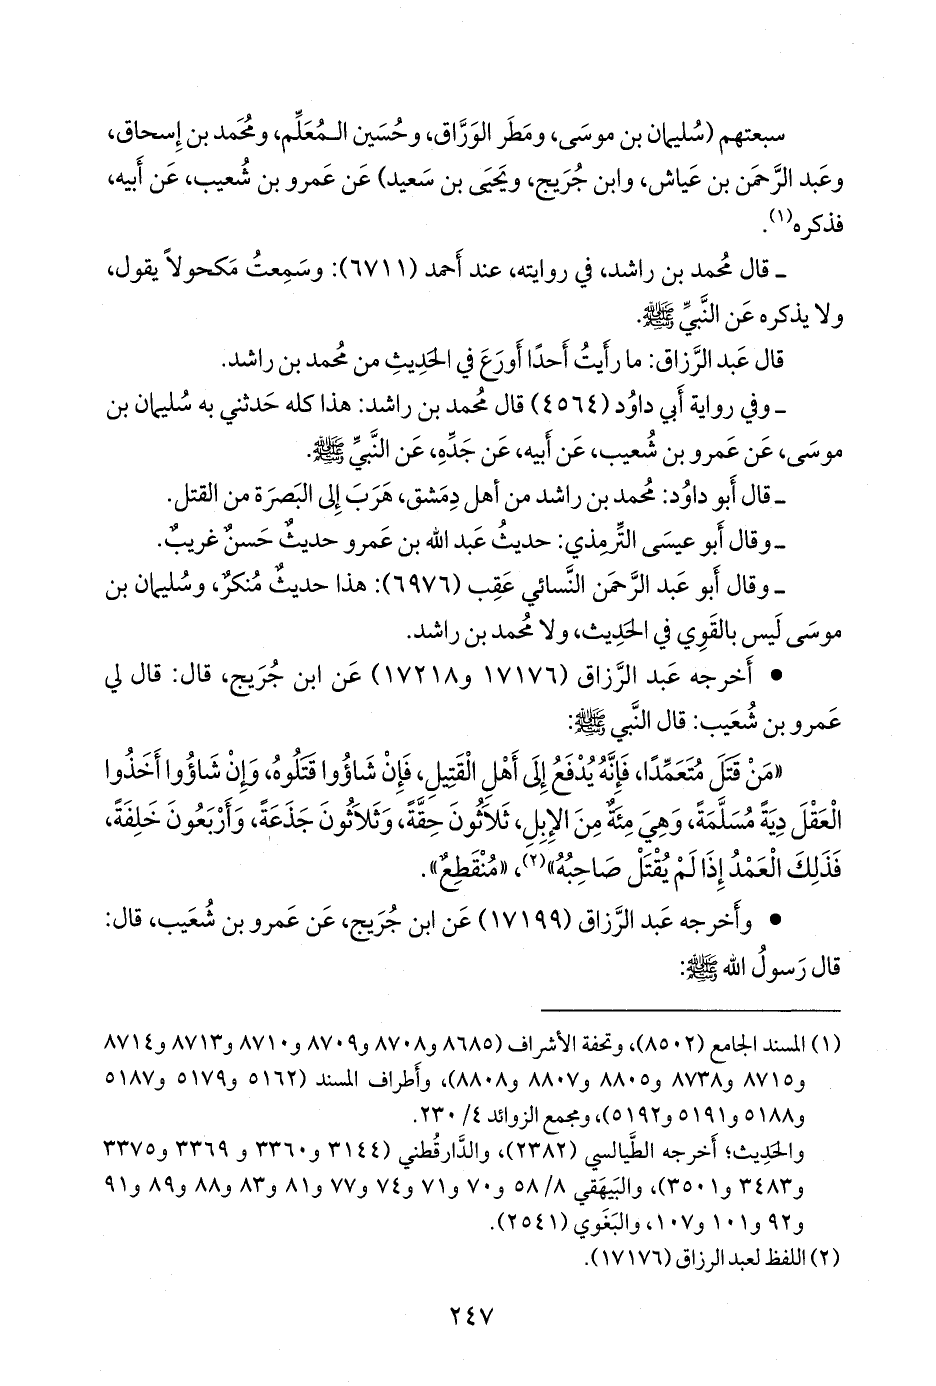 سبعتهم (سُليمان بن موسَى، ومَطَر الوَرَّاق، وحُسَين الـمُعَلِّم، ومُحَمد بن إِسحاق،
وعَبد الرَّحمَن بن عَياش، وابن جُرَيج، ويَحيَى بن سَعيد) عَن عَمرو بن شُعيب، عَن أَبيه،
فذكره(١).
ـ قال مُحمد بن راشد، في روايته، عند أَحمد (٦٧١١): وسَمِعتُ مَكحولاً يقول،
ولا يذكره عَن النَّبيِّ ﷺ.
قال عَبد الرَّزاق: ما رأَيتُ أَحدًا أَورَعَ في الحَدِيثِ من مُحمد بن راشد.
ـ وفي رواية أَبي داوُد (٤٥٦٤) قال مُحمد بن راشد: هذا كله حَدثني به سُليمان بن
موسَى، عَن عَمرو بن شُعيب، عَن أَبيه، عَن جَدِّه، عَن النَّبيِّ ﷺ.
ـ قال أَبو داوُد: مُحمد بن راشد من أَهل دِمَشق، هَرَبَ إِلى البَصرَة من القتل.
ـ وقال أَبو عيسَى التِّرمِذي: حديثُ عَبد الله بن عَمرو حديثٌ حَسنٌ غريبٌ.
ـ وقال أَبو عَبد الرَّحمَن النَّسائي عَقِب (٦٩٧٦): هذا حديثٌ مُنكرٌ، وسُليمان بن
موسَى لَيس بالقَوِي في الحَدِيث، ولا مُحمد بن راشد.
• أَخرجه عَبد الرَّزاق (١٧١٧٦ و١٧٢١٨) عَن ابن جُرَيج، قال: قال لي
عَمرو بن شُعَيب: قال النَّبي ﷺ:
«مَنْ قَتَلَ مُتَعَمِّدًا، فَإِنَّهُ يُدْفَعُ إِلَى أَهْلِ الْقَتِيلِ، فَإِنْ شَاؤُوا قَتَلُوهُ، وَإِنْ شَاؤُوا أَخَذُوا
الْعَقْلَ دِيَةً مُسَلَّمَةً، وَهِيَ مِئَةٌ مِنَ الإِبِلِ، ثَلاَثُونَ حِقَّةً، وَثَلاَثُونَ جَذَعَةً، وَأَرْبَعُونَ خَلِفَةً،
فَذَلِكَ الْعَمْدُ إِذَا لَمْ يُقْتَلْ صَاحِبُهُ»(٢)، «مُنْقَطِعٌ».
• وأَخرجه عَبد الرَّزاق (١٧١٩٩) عَن ابن جُرَيج، عَن عَمرو بن شُعَيب، قال:
قال رَسولُ الله ﷺ:
(١) المسند الجامع (٨٥٠٢)، وتحفة الأشراف (٨٦٨٥ و٨٧٠٨ و٨٧٠٩ و٨٧١٠ و٨٧١٣ و٨٧١٤
و٨٧١٥ و٨٧٣٨ و٨٨٠٥ و٨٨٠٧ و٨٨٠٨)، وأَطراف المسند (٥١٦٢ و٥١٧٩ و٥١٨٧
و٥١٨٨ و٥١٩١ و٥١٩٢)، ومجمع الزوائد ٤/ ٢٣٠.
والحَدِيث؛ أَخرجه الطَّيالسي (٢٣٨٢)، والدَّارقُطني (٣١٤٤ و٣٣٦٠ و ٣٣٦٩ و٣٣٧٥
و٣٤٨٣ و٣٥٠١)، والبَيهَقي ٨/ ٥٨ و٧٠ و٧١ و٧٤ و٧٧ و٨١ و٨٣ و٨٨ و٨٩ و٩١
و٩٢ و١٠١ و١٠٧، والبَغَوي (٢٥٤١).
(٢) اللفظ لعبد الرزاق (١٧١٧٦).
٢٤٧